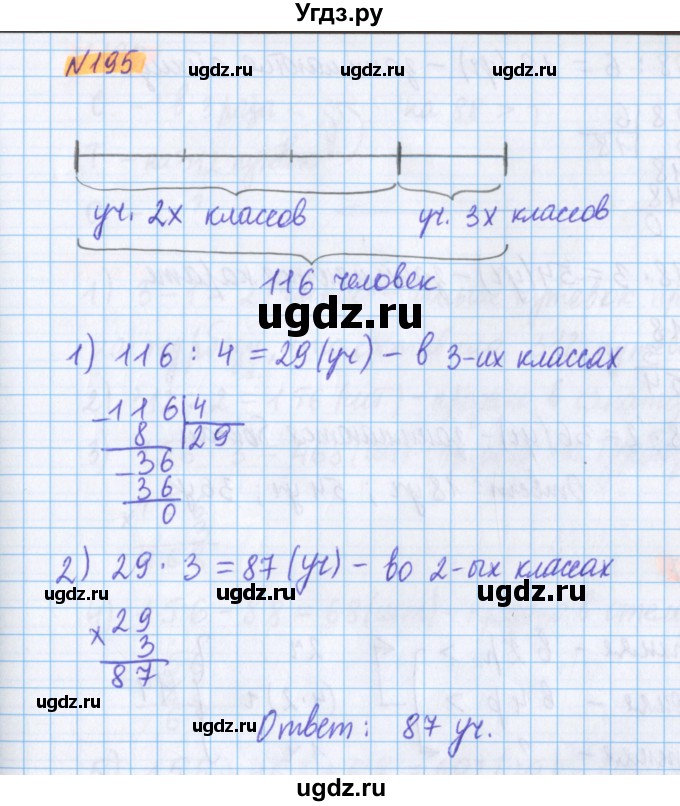 Угдз.ру
№195
ugdz.ru ugdz.ru ugdz.ru
уч. 2х классов уч. 3х классов
116 человек
ugdz.ru
1) 116 : 4 = 29 (уч) – в 3-их классах
ugdz.ru ugdz.ru ugdz.ru
116 4
8 29
36
36
0
ugdz.ru
2) 29 · 3 = 87 (уч) – во 2-ых классах
ugdz.ru ugdz.ru ugdz.ru
× 29
3
87
ugdz.ru
Ответ: 87 уч.
ugdz.ru ugdz.ru ugdz.ru
ugdz.ru